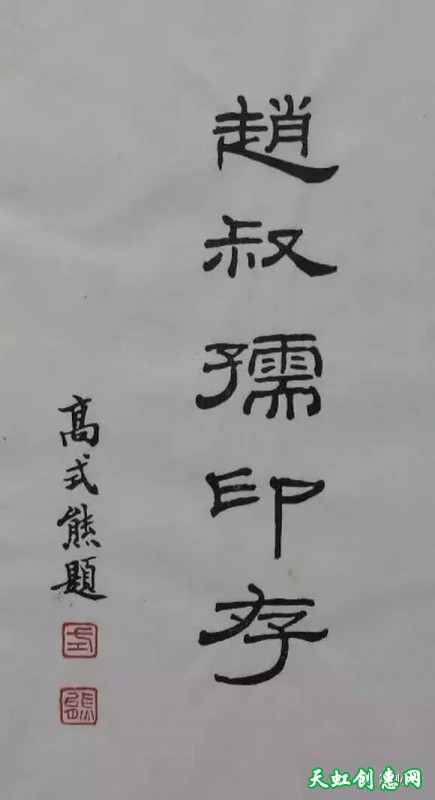 趙叔孺印存
高式熊題
式
熊
天虹创意网